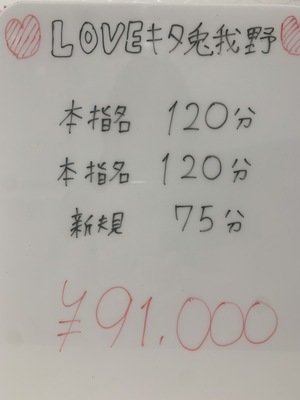 LOVEキタ兎我野
本指名 120分
本指名 120分
新規 75分
¥91.000